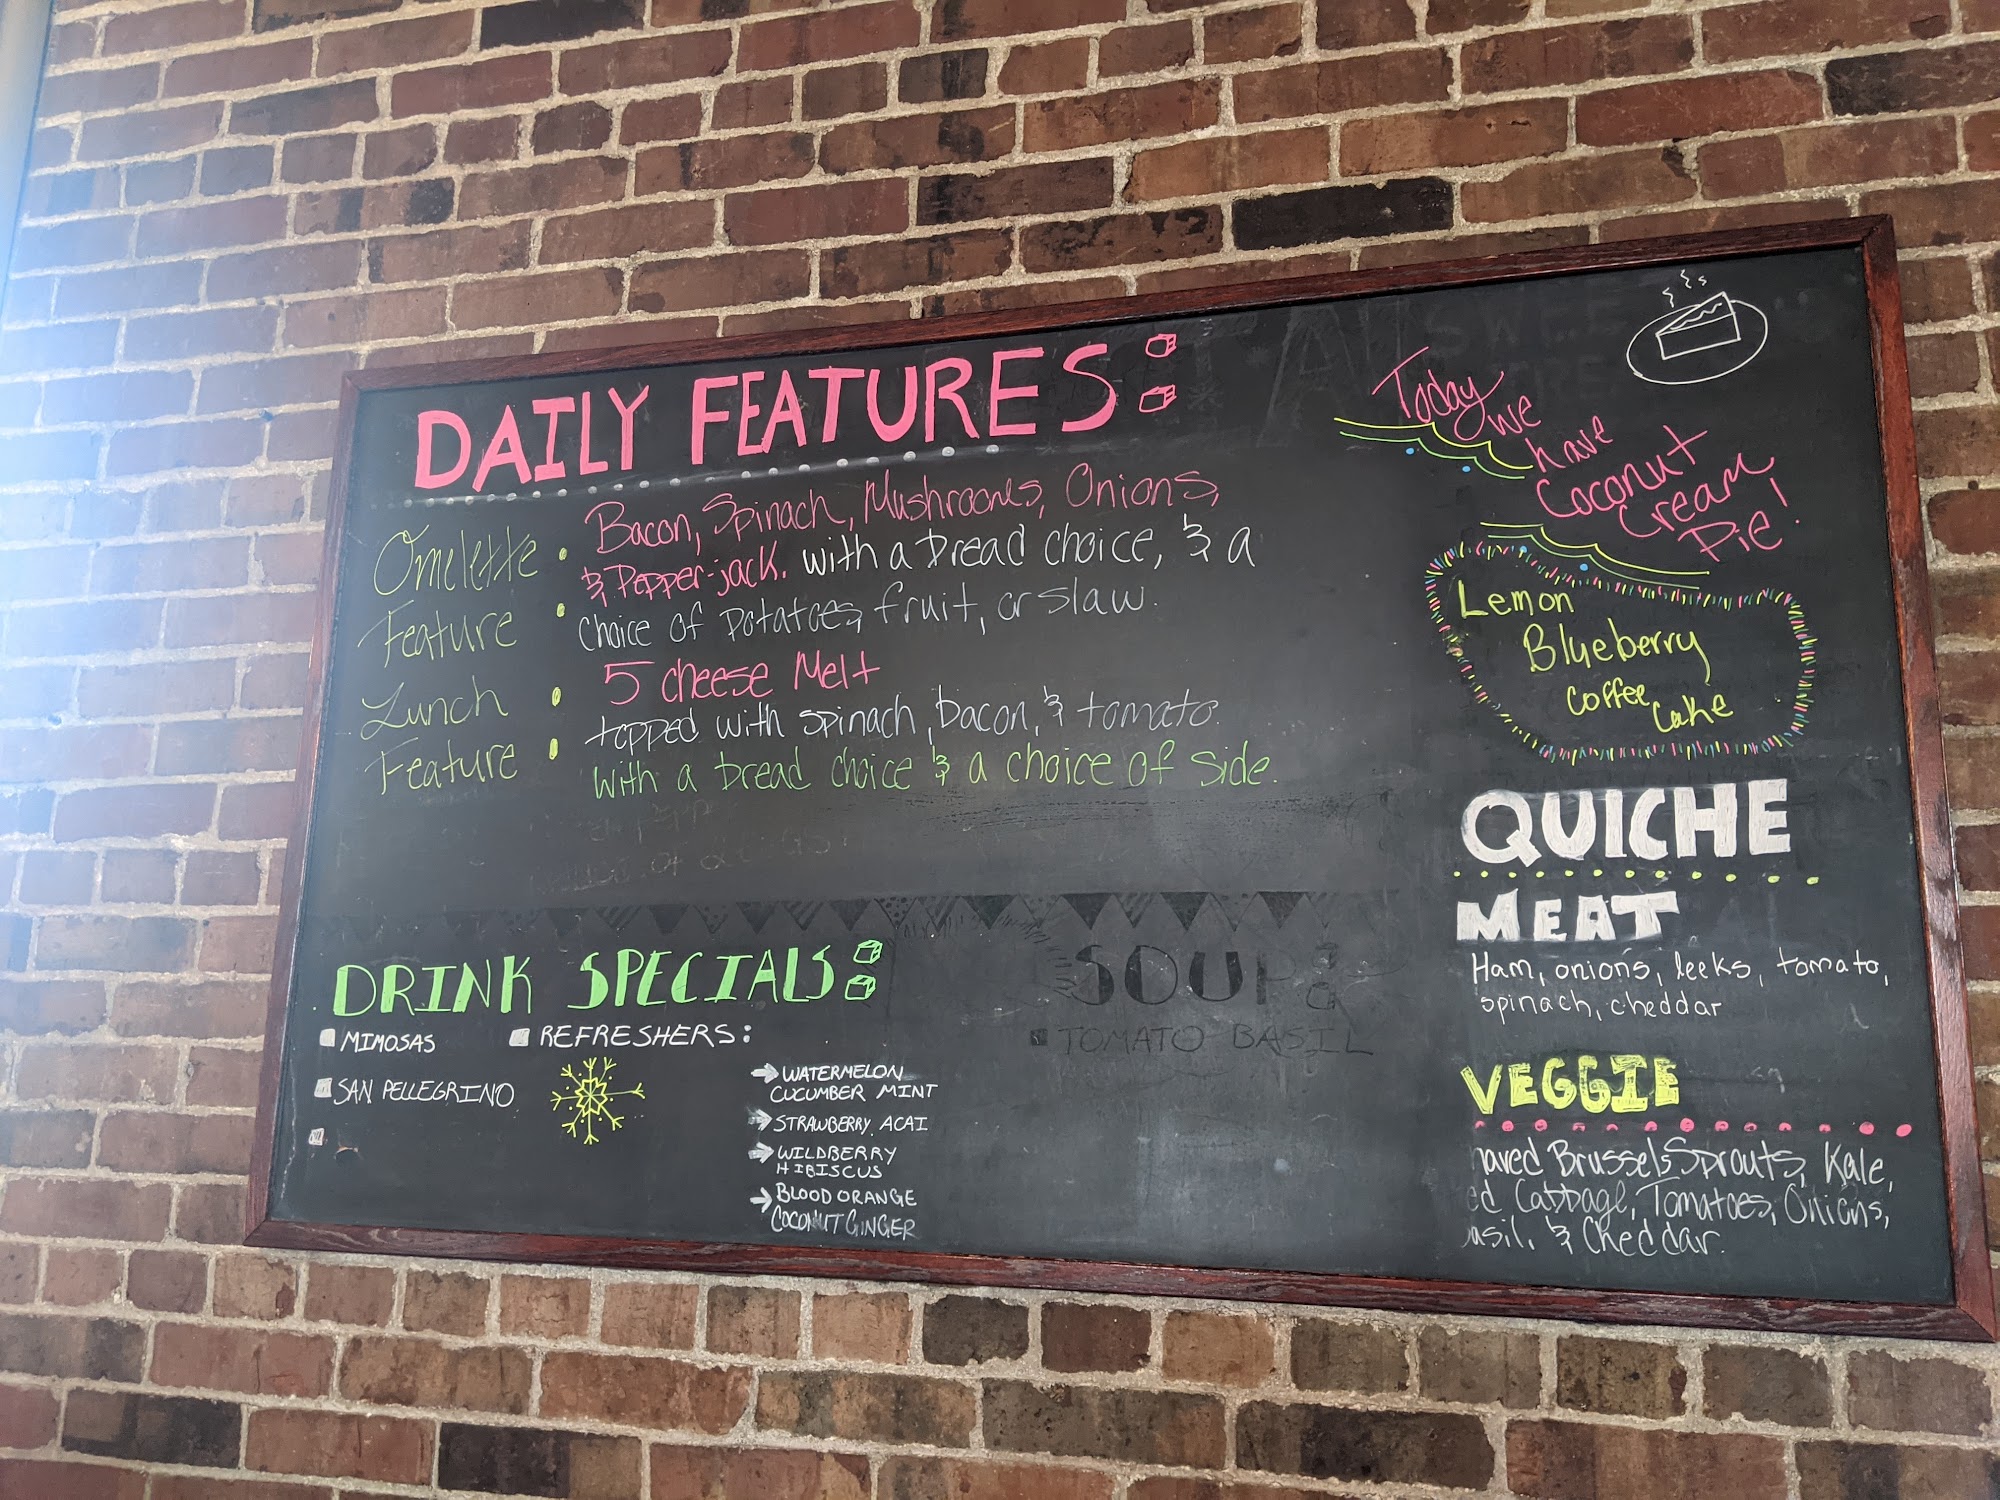 DAILY FEATURES:
Omelette : Bacon, Spinach, Mushrooms, Onions,
& Pepper-jack. with a bread choice, & a
Feature
choice of potatoes, fruit, or slaw.
Lunch : 5 cheese Melt
topped with spinach, bacon, & tomato.
Feature
with a bread choice & a choice of side.
Today
we
have
Coconut
Cream
Pie!
Lemon
Blueberry
coffee
cake
QUICHE
MEAT
Ham, onions, leeks, tomato,
spinach, cheddar
VEGGIE
haved Brussels Sprouts, Kale,
ed Cabbage, Tomatoes, Onions,
asil, & Cheddar.
DRINK SPECIALS:
MIMOSAS
SAN PELLEGRINO
REFRESHERS:
→ WATERMELON
CUCUMBER MINT
→ STRAWBERRY ACAI
→ WILDBERRY
HIBISCUS
→ BLOOD ORANGE
COCONUT GINGER
SOUP:
TOMATO BASIL